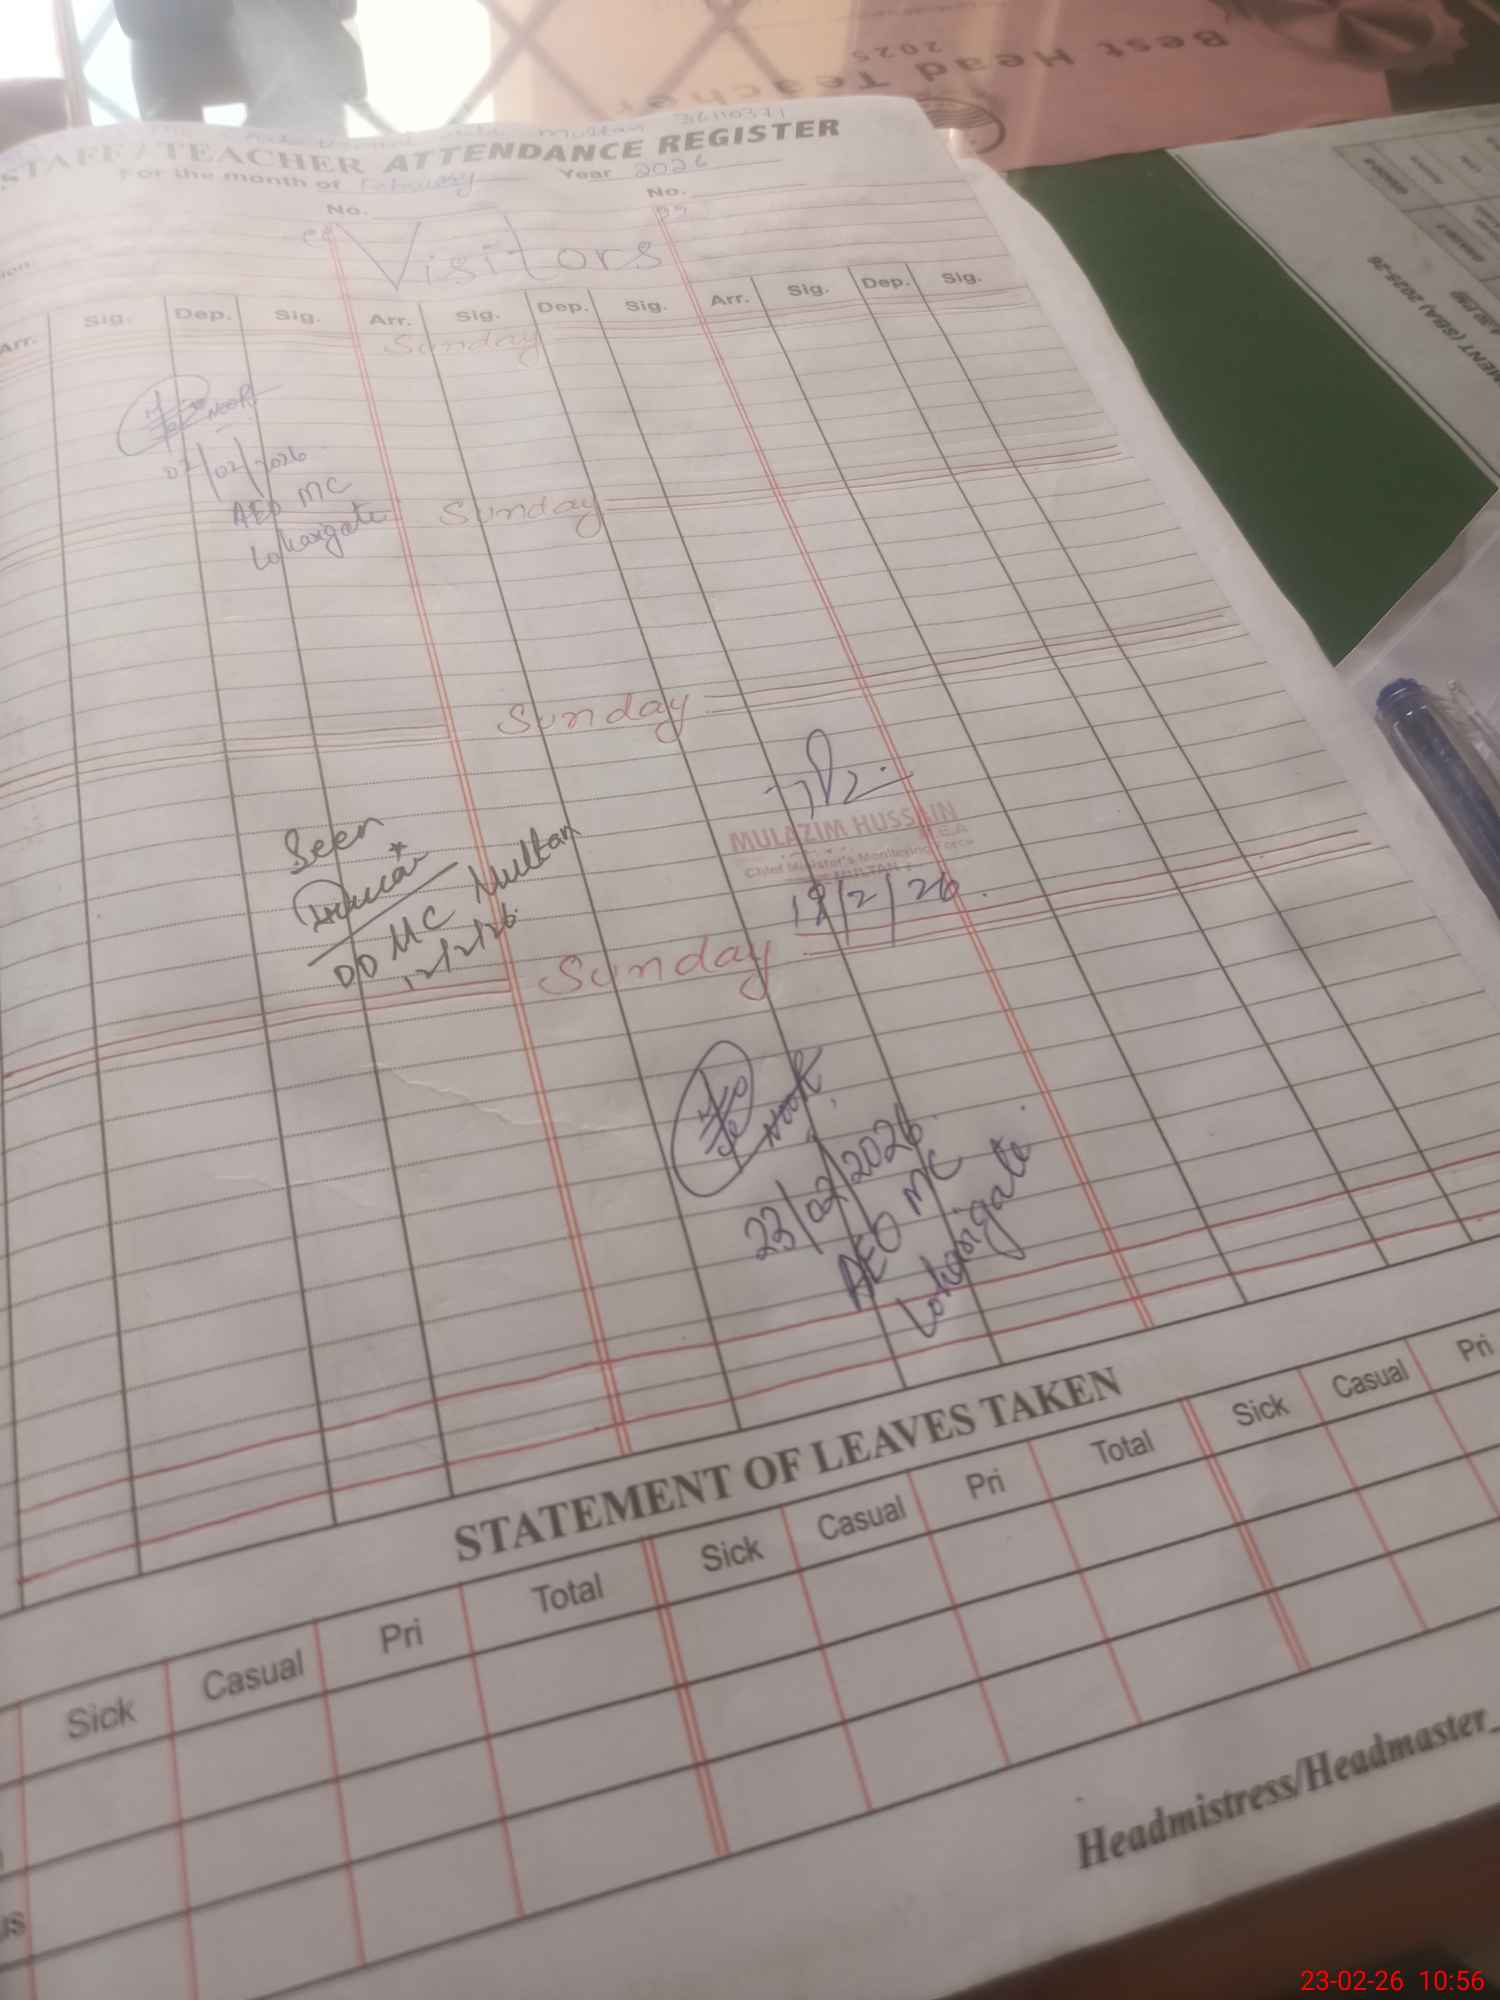 Best Head Teacher
2025
Multan 36110371
STAFF / TEACHER ATTENDANCE REGISTER
For the month of February Year 2026
No. No.
Visitors
Arr. Sig. Dep. Sig. Arr. Sig. Dep. Sig. Arr. Sig. Dep. Sig.
Sunday
Noor
02/2026
AEO MC
Loharigate
Sunday
Sunday
Seen
DD MC Multan
12/2/26
MULAZIM HUSSAIN
MEA
Chief Minister's Monitoring Force
MULTAN
19/2/26
Sunday
Noor
23/02/2026
AEO MC
Loharigate
STATEMENT OF LEAVES TAKEN
Sick Casual Pri Total Sick Casual Pri Total Sick Casual Pri
Headmistress/Headmaster
MENT (SBA) 2025-26
23-02-26 10:56